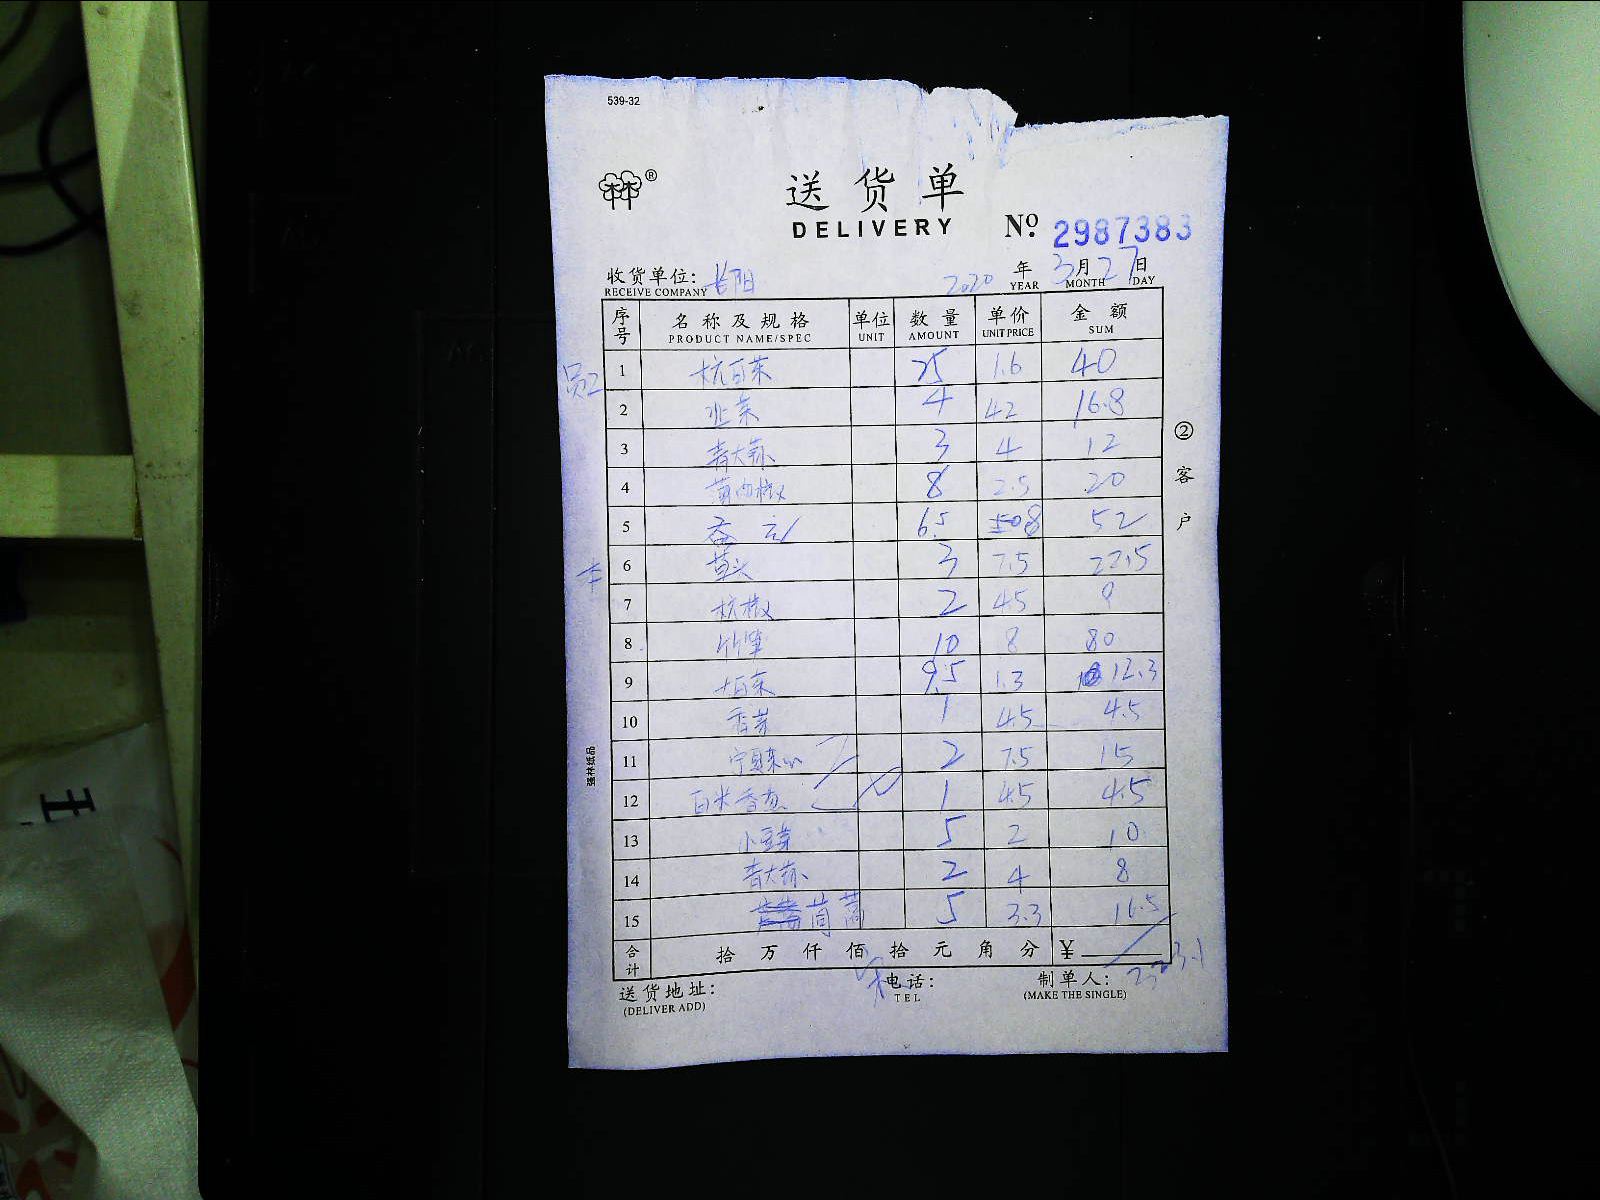 539-32
林林®
送货单
DELIVERY
№ 2987383
收货单位: 长阳 2020 年 3 月 27 日
RECEIVE COMPANY YEAR MONTH DAY
序号 名称及规格 单位 数量 单价 金额
PRODUCT NAME/SPEC UNIT AMOUNT UNIT PRICE SUM
员工
1 杭白菜 25 1.6 40
2 韭菜 4 42 16.8
3 青大蒜 3 4 12
4 8 2.5 20
5 6.5 8 52
本
6 草头 3 7.5 22.5
7 杭椒 2 45 9
8 竹笋 10 8 80
9 大白菜 9.5 1.3 12.3
10 香芹 1 45 4.5
11 宁夏菜心 2 7.5 15
12 白米香 1 4.5 4.5
13 小豆芽 5 2 10
14 青大蒜 2 4 8
15 茼蒿 5 3.3 16.5
合计 拾 万 仟 佰 拾 元 角 分 ¥
送货地址: 电话: 制单人:
(DELIVER ADD) TEL (MAKE THE SINGLE)
②客户
强林纸品